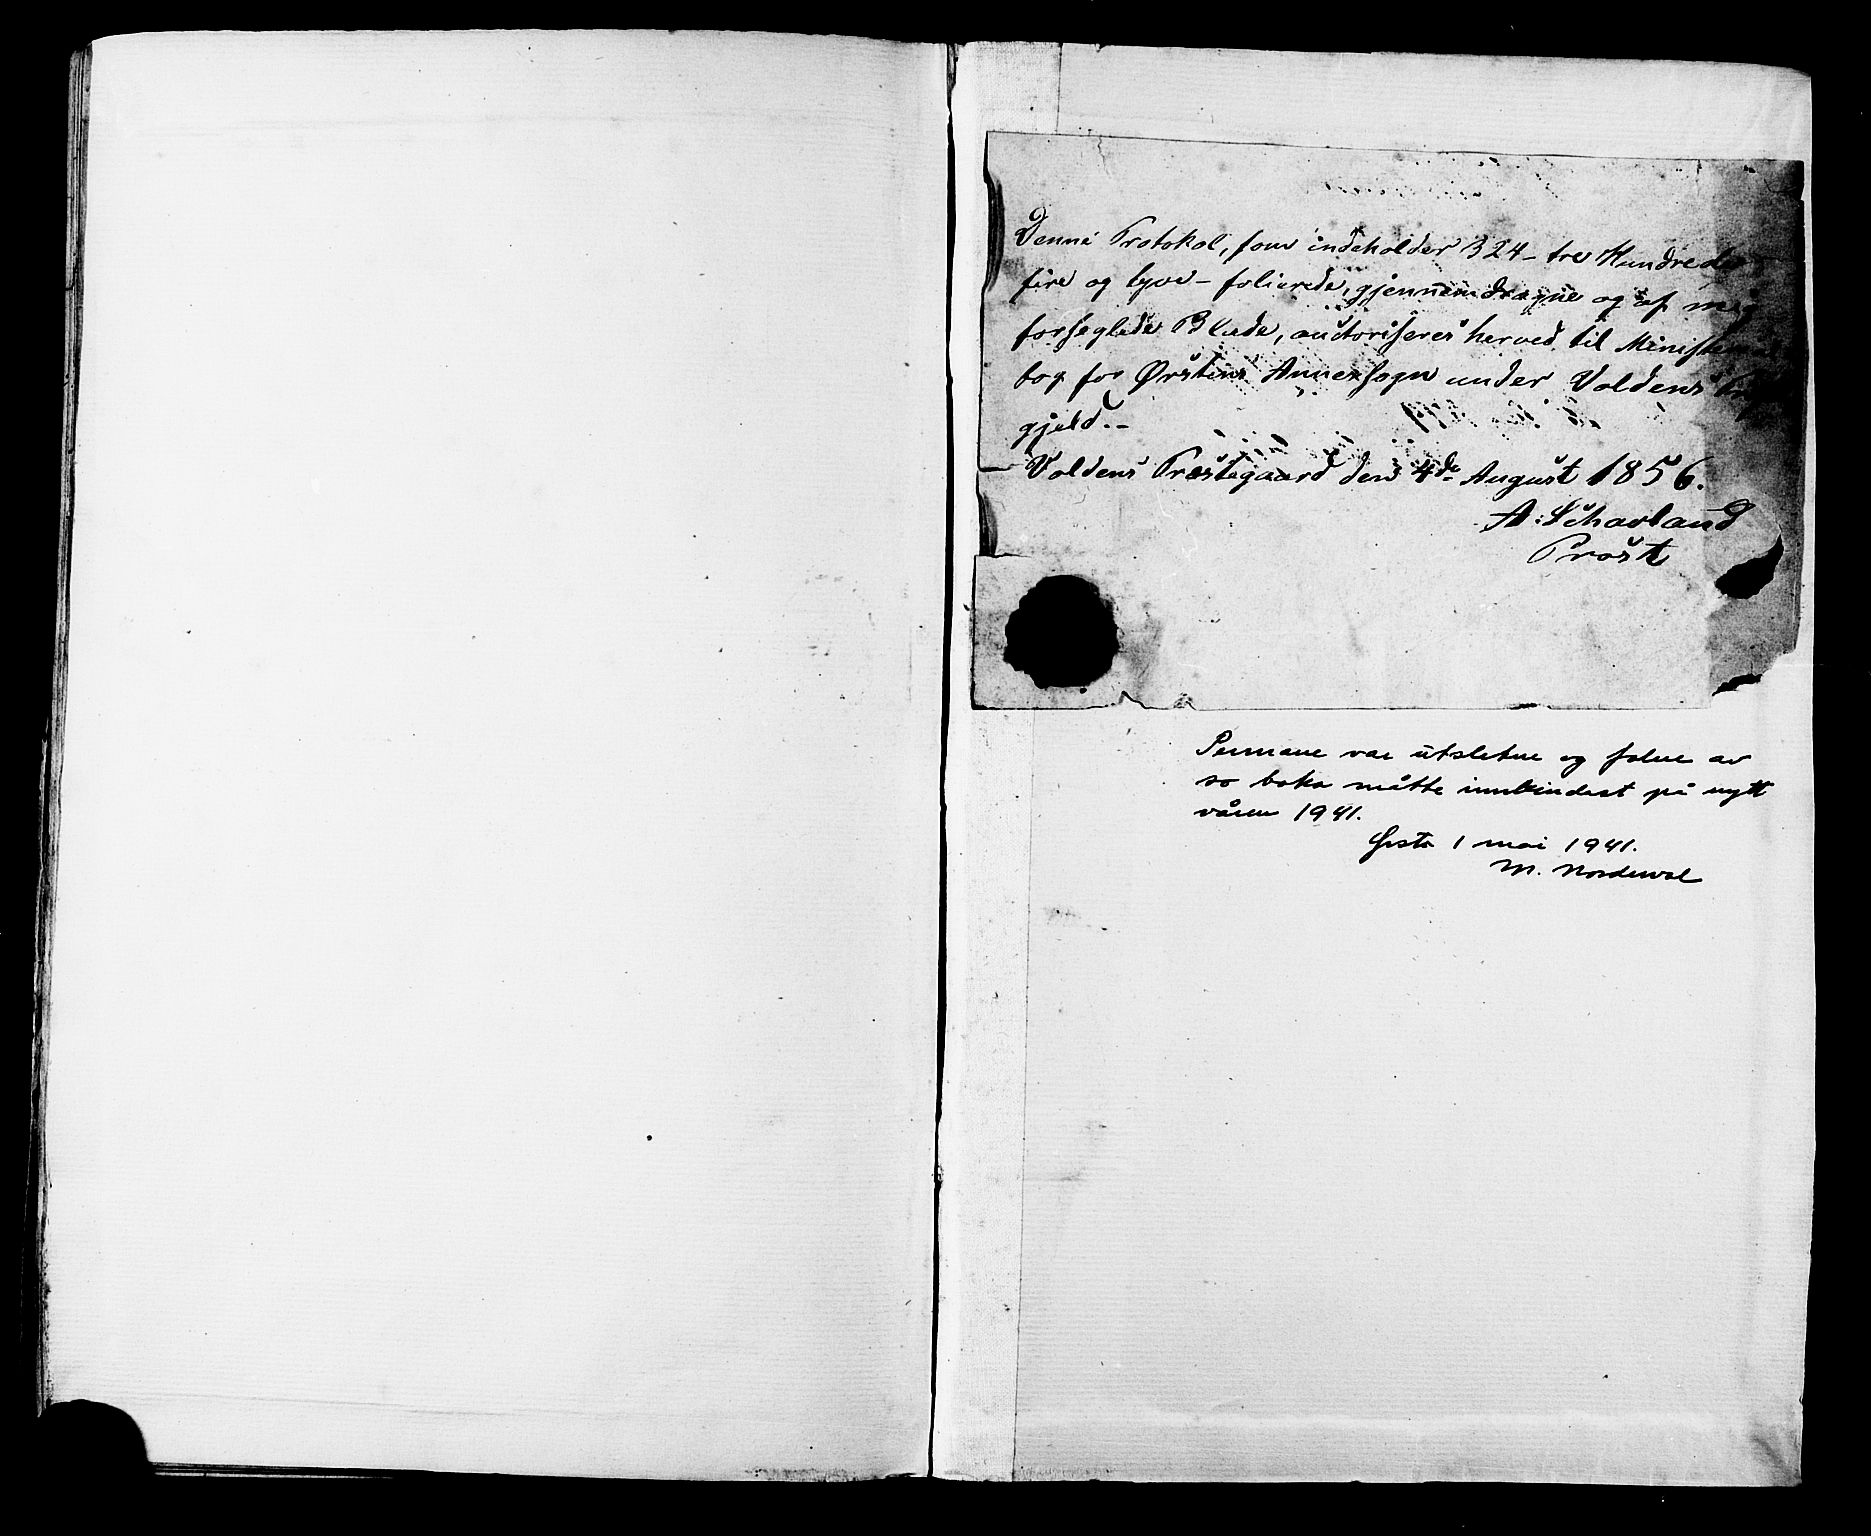 Denne Protokol, som indeholder 324 – tre Hundrede
fire og tyve – folierede, gjennemdragne og af mig
forseglede Blade, auctoriseres herved til Ministerial
bog for Ørstens Annexsogn under Voldens
gjeld. –
Voldens Præstegaard den 4de August 1856.
A: Scharland
Prost
Permane var utsletne og falne av
so boka måtte innbindast på nytt
våren 1941.
Ørsta 1 mai 1941.
M. Norderval